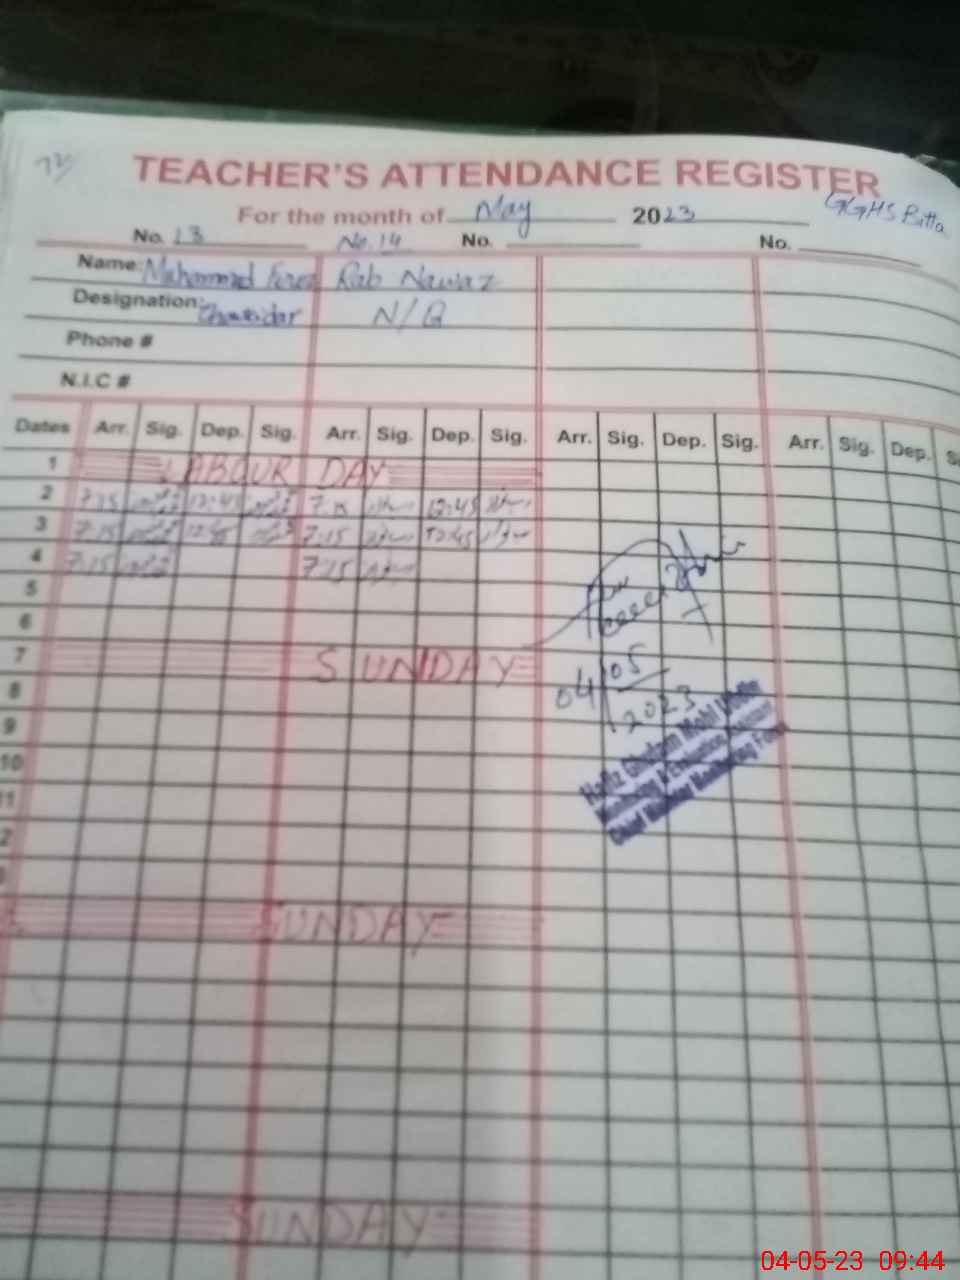 TEACHER'S ATTENDANCE REGISTER
For the month of May 2023 GGHS Bitta
No. 13 No. 14 No. No.
Name: Muhammad Feroz Rab Nawaz
Designation: Chowkidar N/Q
Phone #
N.I.C #
Dates Arr. Sig. Dep. Sig. Arr. Sig. Dep. Sig. Arr. Sig. Dep. Sig. Arr. Sig. Dep.
1 LABOUR DAY
2 7:15 12:45 7:15 12:45
3 7:15 12:45 7:15 12:45
4 7:15 7:15
5
6
7 SUNDAY
04/05/2023
8
9
10
11
Hafiz Ghulam Mohi Uddin
Monitoring & Evaluation Assistant
Chief Minister Monitoring Force
SUNDAY
SUNDAY
04-05-23 09:44